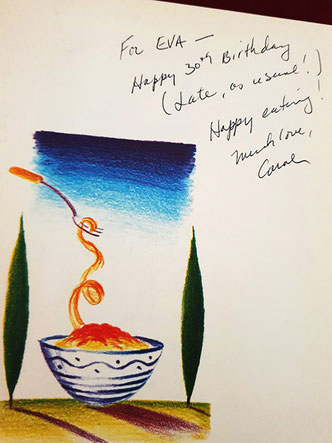 For EVA —
Happy 30th Birthday
(Late, as usual!)
Happy eating!
Much love,
Carol